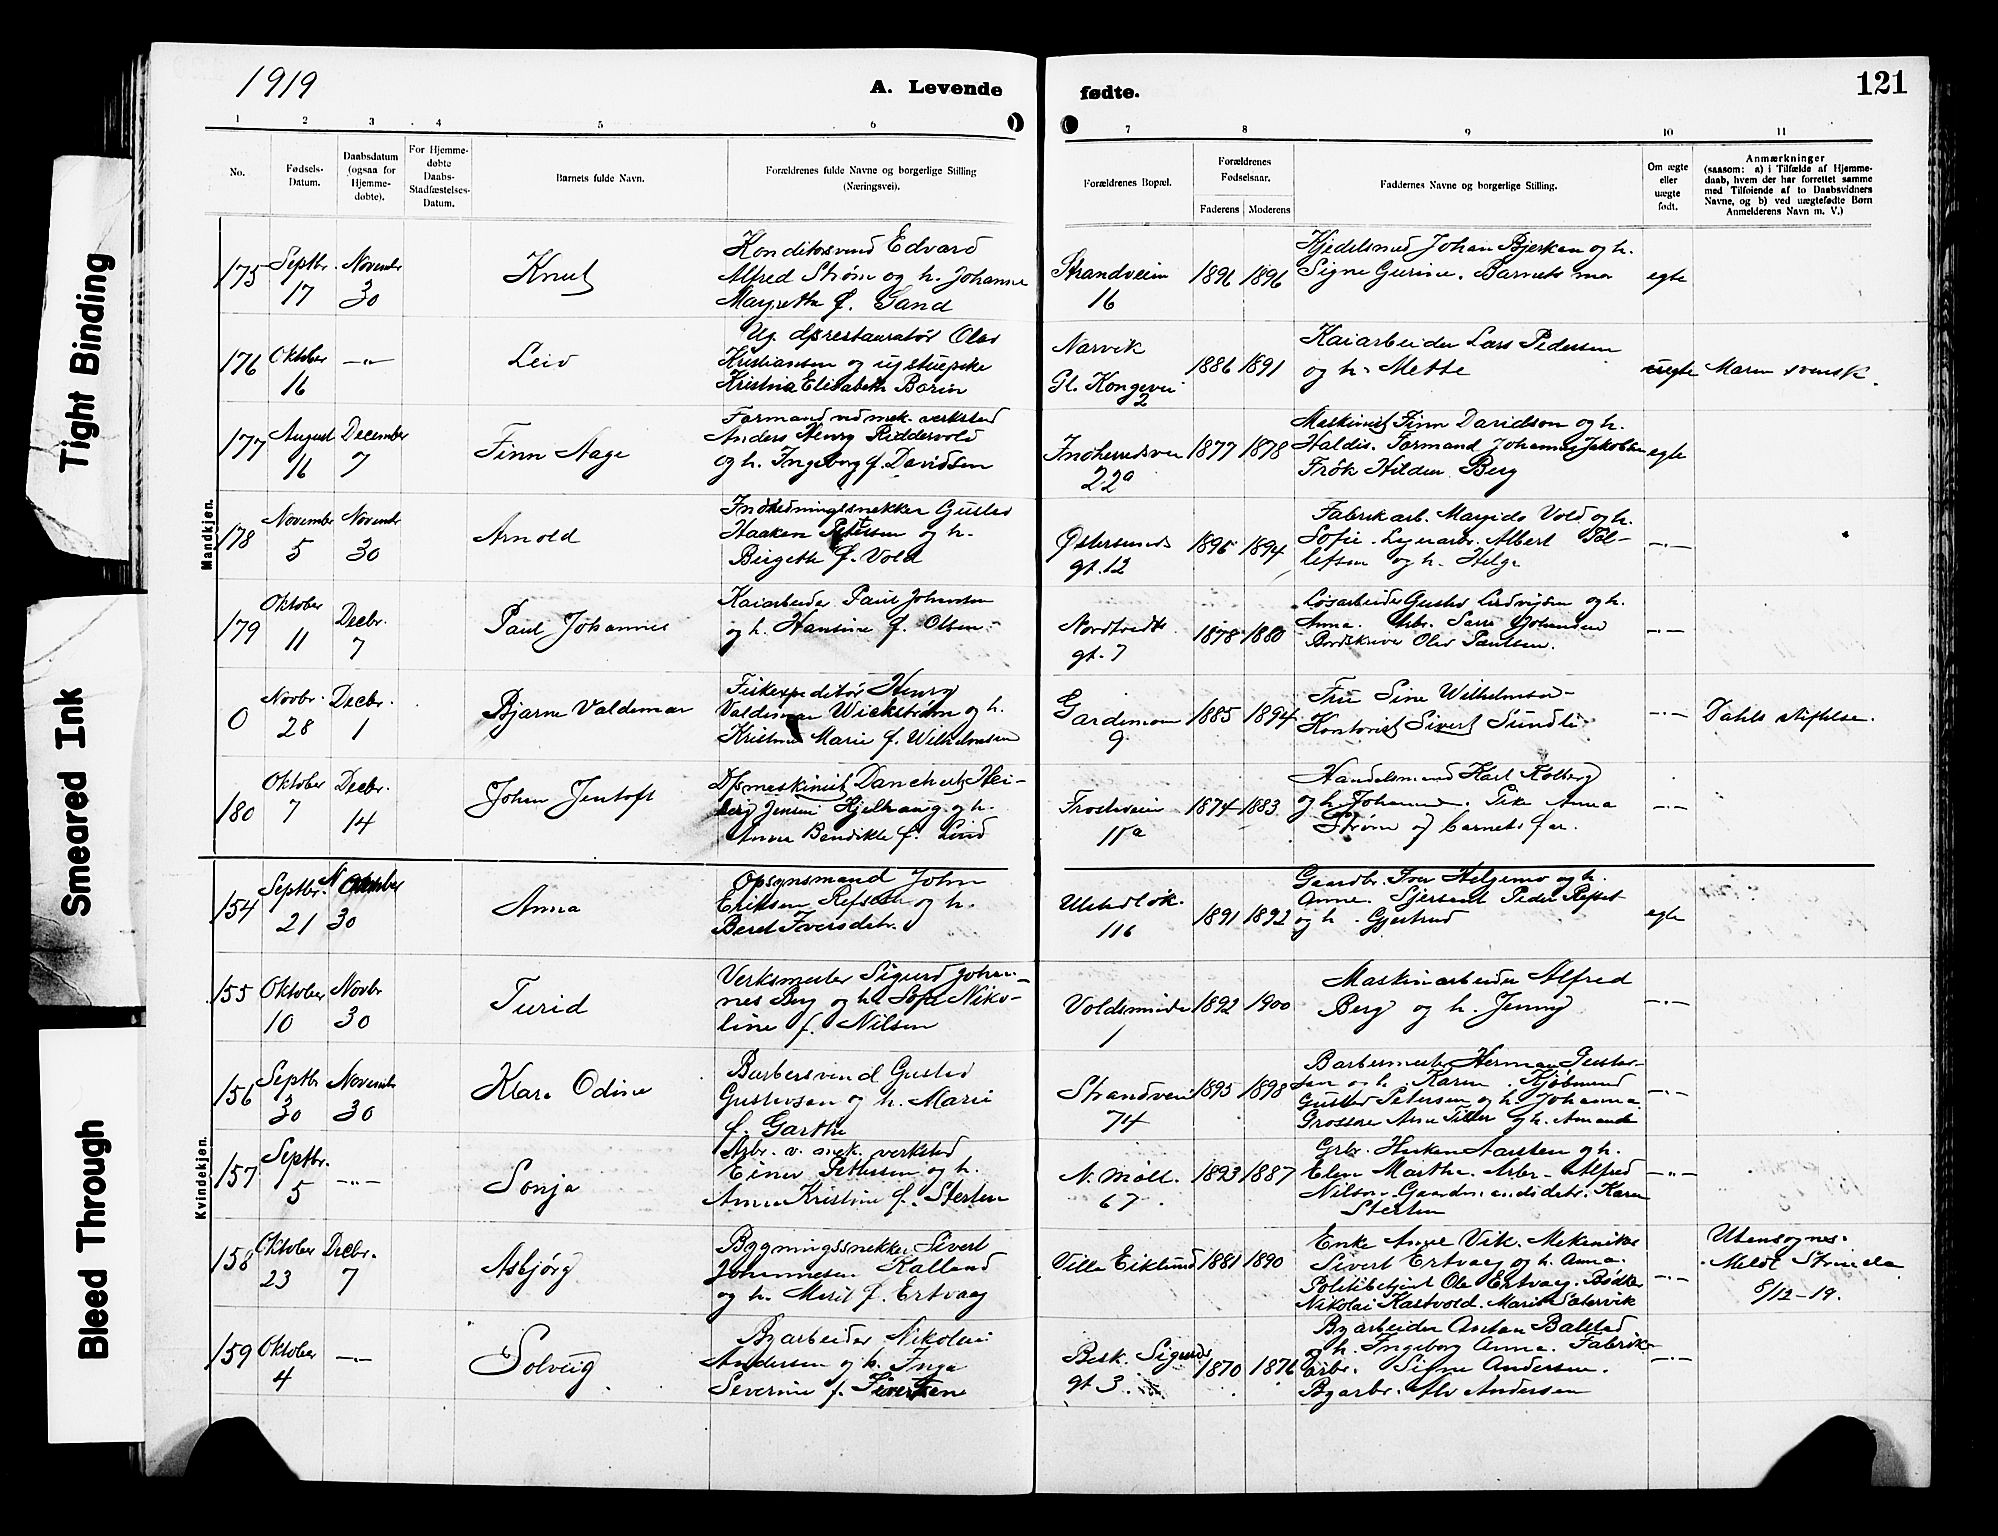 1919
A. Levende fødte.
121
Tight Binding
Smeared Ink
Bleed Through
1 2 3 4 5 6 7 8 9 10 11
No.
Fødsels-
Datum.
Daabsdatum
(ogsaa for
Hjemme-
døbte).
For Hjemme-
døbte
Daabs-
Stadfæstelses-
Datum.
Barnets fulde Navn.
Forældrenes fulde Navne og borgerlige Stilling
(Næringsvei).
Forældrenes Bopæl.
Forældrenes
Fødselsaar.
Faderens Moderens
Faddernes Navne og borgerlige Stilling.
Om ægte
eller
uægte
født.
Anmærkninger
(saasom: a) i Tilfælde af Hjemme-
daab, hvem der har forrettet samme
med Tilføiende af to Daabsvidners
Navne, og b) ved uægtefødte Børn
Anmelderens Navn m. V.)
Mandkjøn.
175
Septbr.
17
Novembr
30
Knut
Konditorsvend Edvard
Alfred Strøm og h. Johanne
Margrethe f. Sand
Strandveien
16
1896 1896
Kjedelsmed Johan Bjerkan og h.
Signe Gurine. Barnets mor
egte
176
Oktober
16
-"-
Leiv
Ug. dpsrestauratør Olav
Kristiansen og ug stuepike
Kristina Elisabeth Borin
Narvik
Gl. Kongevei
2
1886 1891
Kaiarbeider Lars Pedersen
og h. Mette
uegte
Moren svensk.
177
August
16
December
7
Finn Aage
Formand ved mek. verksted
Anders Henry Riddervold
og h. Ingeborg f. Davidsen
Indherredsvei
22a
1877 1878
Maskinist Finn Davidson og h.
Haldis. Formand Johannes Jakobsen
Frøk Hilden Berg
egte
178
November
5
Novembr
30
Arnold
Indredningssnekker Gustav
Haaken Pettersen og h.
Birgethe f. Vold
Østersunds
gt. 12
1895 1894
Fabrikarb. Margido Vold og h.
Sofie. Albert Tol-
lefsen og h. Helga
-"-
179
Oktober
11
Decbr.
7
Paul Johannes
Kaiarbeider Paul Johansen
og h. Hansine f. Olsen
Nordtvedts
gt. 7
1878 1880
Løsarbeider Gustav Ludvigsen og h.
Anna. Arbr. Johansen
Bordskriver Olav Paulsen.
-"-
0
Novbr.
28
Decbr.
1
Bjarne Valdemar
Fiskexpeditør Henry
Valdemar Wickstrøm og h.
Kristine Marie f. Wilhelmsen
Gardemoen
9
1885 1894
Fru Sine Wilhelmsen
Kontorist Sivert Sundli
-"-
Dahls stiftelse.
180
Oktober
7
Decbr.
14
Johan Jentoft
Dpsmaskinist Danchert Hei-
berg Jensen Hjelhaug og h.
Anna Bendikte f. Lind
Frostaveien
11a
1874 1883
Handelsmand Karl Kolberg
og h. Johanna. Pike Anna
Strøm og barnets far.
-"-
Kvindekjøn.
154
Septbr.
21
30
Anna
Opsynsmand John
Eriksen Refseth og h.
Beret Iversdatr.
Ulstadløk.
116
1891 1892
Gaardbr. Iver Helgemo og h.
Anne. Sjersant Peder Refset
og h. Gjertrud
egte
155
Oktober
10
Novbr
30
Turid
Verksmester Sigurd Johan-
nes Berg og h. Sofie Niko-
line f. Nilsen
Voldsminde
1
1892 1900
Maskinarbeider Alfred
Berg og h. Jenny
-"-
156
Septbr
30
Novembr
30
Klara Odine
Barbersvend Gustav
Gustavsen og h. Marie
f. Garthe
Strandvei
74
1895 1898
Barbermester Herman Gustav-
sen og h. Karen. Kjøbmand
Gustav Petersen og h. Johanna.
Grosserer Arne Tiller og h. Amanda
-"-
157
Septbr.
5
-"-
Sonja
Arbr. v. mek. verksted
Einar Pettersen og h.
Anna Kristine f. Sterten
N. Møll.
67
1893 1887
Grbr. Haaken Aarsten og h.
Elen Marthe. Arbr. Alfred
Nilsen. Karen
Sterten
-"-
158
Oktober
23
Decbr.
7
Asbjørg
Bygningssnekker Sivert
Johannesen Kalland
og h. Marit f. Ertvaag
Villa Eiklund
1881 1890
Enke Anne Vik. Mekaniker
Sivert Ertvaag og h. Anna.
Politibetjent Ole Ertvaag. Bødker
Nikolai Kastvold. Marit Sætervik
-"-
Utensognes.
Meldt Strinda
8/12-19.
159
Oktober
4
-"-
Solveig
Byarbeider Nikolai
Andersen og h. Inga
Severine f. Sivertsen
Besk. Sigurds
gt 3.
1870 1876
Byarbeider Anton Balstad
og h. Ingeborg Anna. Fabrik-
arbr. Signe Andersen.
Byarbr. Alv Andersen
-"-